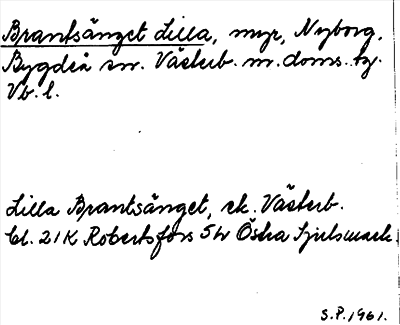 Brantsänget Lilla, myr, Nyborg,
Bygdeå sn. Västerb. m. doms. tg.
Vb. l.
Lilla Brantsänget, ek. Västerb.
bl. 21K Robertsfors 5h Östra Sjulsmark
S.P. 1961.